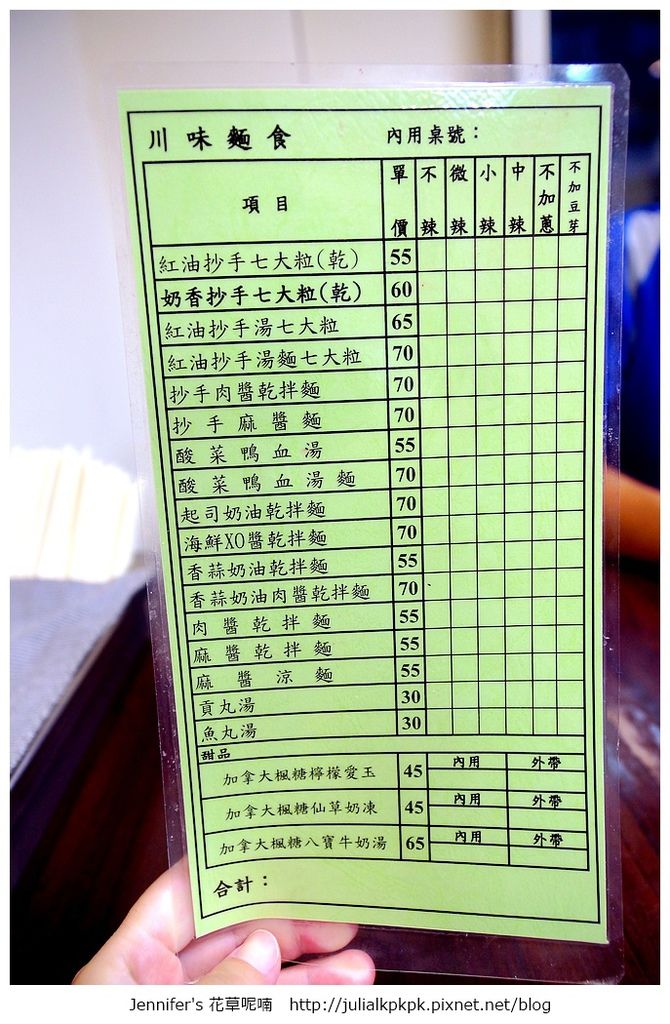 川味麵食 內用桌號：
項目 單價 不辣 微辣 小辣 中辣 不加蔥 不加豆芽
紅油抄手七大粒(乾) 55
奶香抄手七大粒(乾) 60
紅油抄手湯七大粒 65
紅油抄手湯麵七大粒 70
抄手肉醬乾拌麵 70
抄手麻醬麵 70
酸菜鴨血湯 55
酸菜鴨血湯麵 70
起司奶油乾拌麵 70
海鮮XO醬乾拌麵 70
香蒜奶油乾拌麵 55
香蒜奶油肉醬乾拌麵 70
肉醬乾拌麵 55
麻醬乾拌麵 55
麻醬涼麵 55
貢丸湯 30
魚丸湯 30
甜品
加拿大楓糖檸檬愛玉 45 內用 外帶
加拿大楓糖仙草奶凍 45 內用 外帶
加拿大楓糖八寶牛奶湯 65 內用 外帶
合計：
Jennifer's 花草呢喃 http://julialkpkpk.pixnet.net/blog